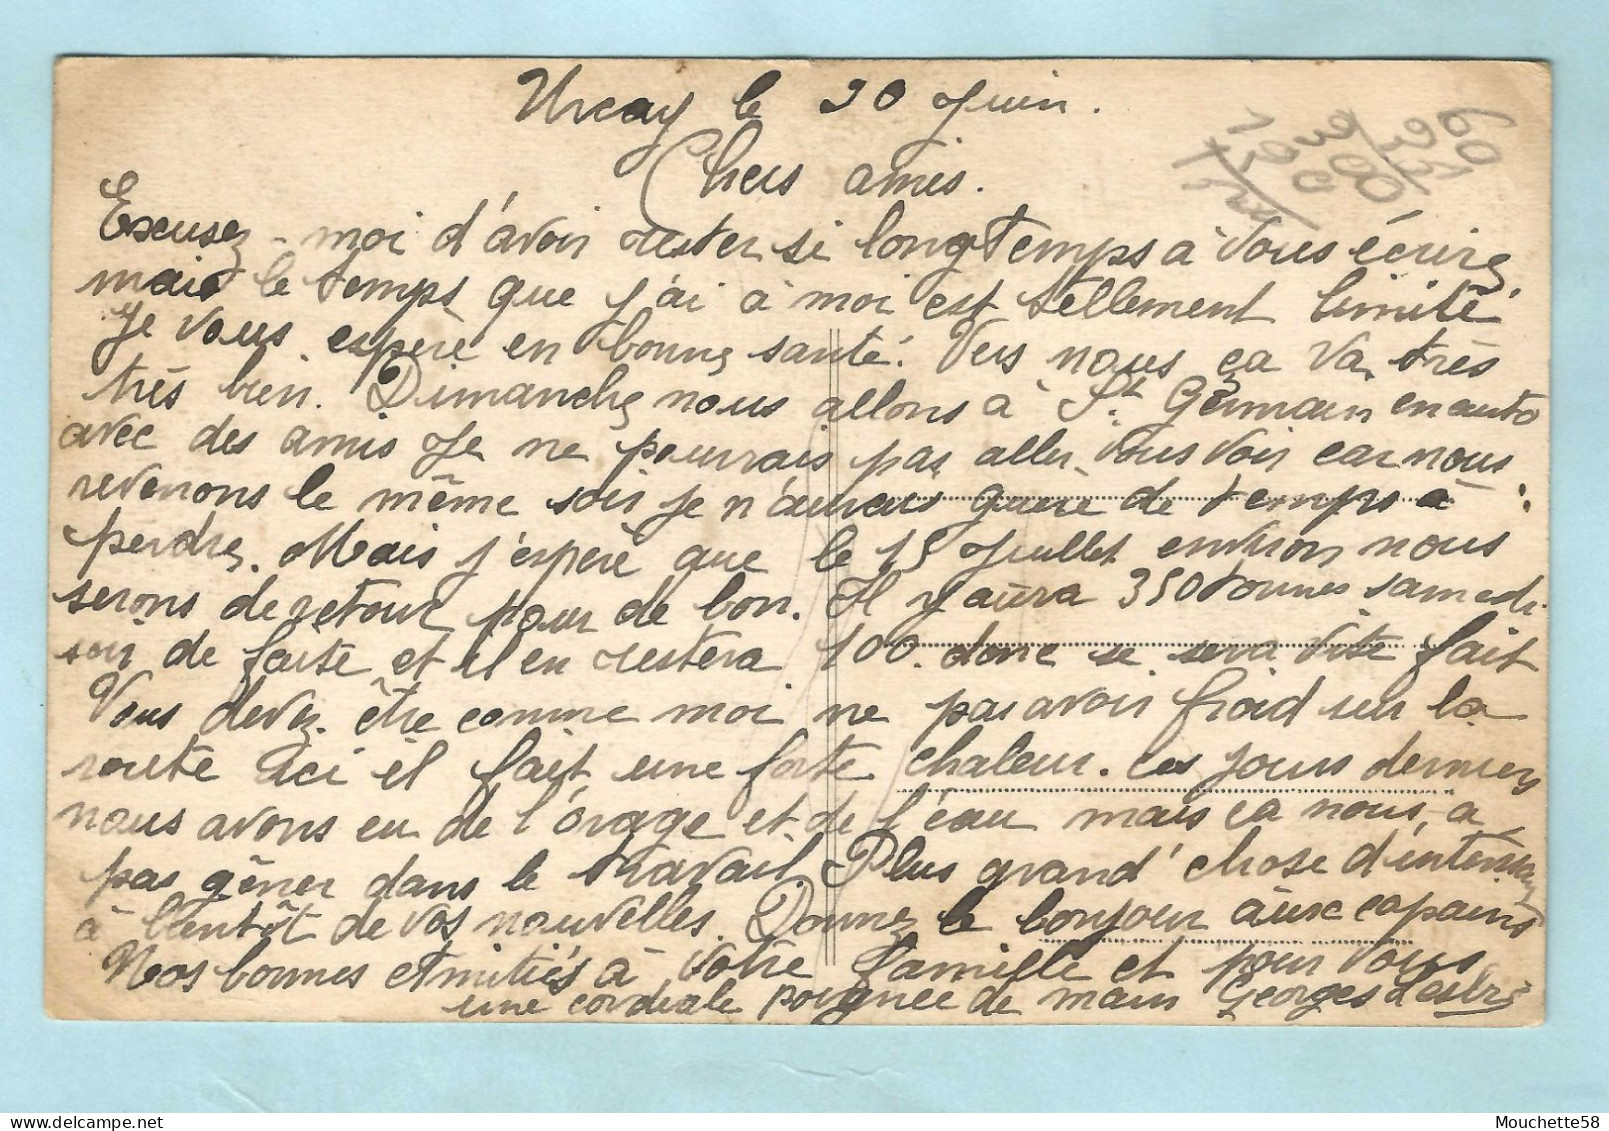 Urcay le 20 Juin.
Chers amis.
Excusez-moi d'avoir rester si longtemps à vous écrire,
mais le temps que j'ai à moi est tellement limité.
Je vous espère en bonne santé. Vers nous ça va très
très bien. Dimanche nous allons à St Germain en auto
avec des amis Je ne pourrais pas aller vous voir car nous
revenons le même soir je n'aurais guère de temps à
perdre. Mais j'espère que le 15 Juillet environ nous
serons de retour pour de bon. Il y aura 350 tonnes samedi
soir de faite et il en restera 100. donc se sera vite fait
Vous devez être comme moi ne pas avoir froid sur la
route Ici il fait une forte chaleur. Ces jours derniers
nous avons eu de l'orage et de l'eau mais ça nous a
pas gêner dans le travail. Plus grand' chose d'intéressant
à bientôt de vos nouvelles. Donnez le bonjour aux copains
Nos bonnes amitiés à votre famille et pour vous
une cordiale poignée de main Georges
60
300
190
Mouchette58